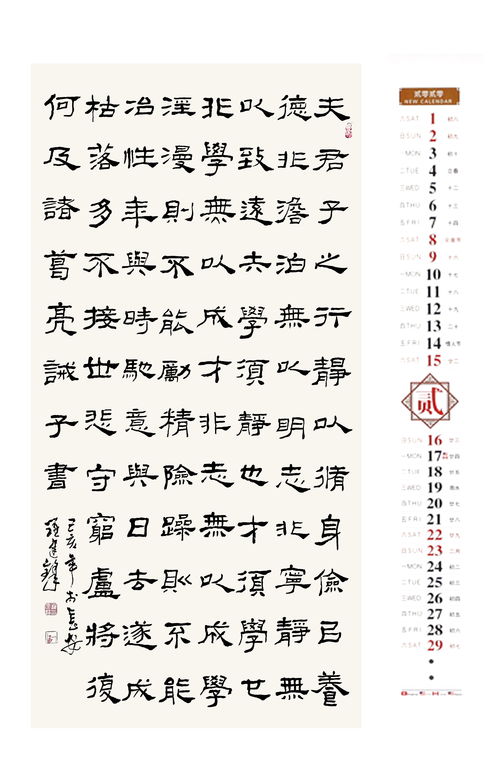 夫君子之行靜以脩身儉已養
德非澹泊無以明志非寧靜無
以致遠夫學須靜也才須學也
非學無以成才非志無以成學
淫漫則不能勵精險躁則不能
冶性年與時馳意與日去遂成
枯落多不接世悲守窮盧將復
何及諸葛亮誡子書
己亥年於長安
贰零贰零
NEW CALENDAR
六 SAT 1 初八
日 SUN 2 初九
一 MON 3 初十
二 TUE 4 立春
三 WED 5 十二
四 THU 6 十三
五 FRI 7 十四
六 SAT 8 元宵节
日 SUN 9 十六
一 MON 10 十七
二 TUE 11 十八
三 WED 12 十九
四 THU 13 二十
五 FRI 14 情人节
六 SAT 15 廿二
贰
日 SUN 16 廿三
一 MON 17 廿四
二 TUE 18 廿五
三 WED 19 雨水
四 THU 20 廿七
五 FRI 21 廿八
六 SAT 22 廿九
日 SUN 23 二月
一 MON 24 初二
二 TUE 25 初三
三 WED 26 初四
四 THU 27 初五
五 FRI 28 初六
六 SAT 29 初七